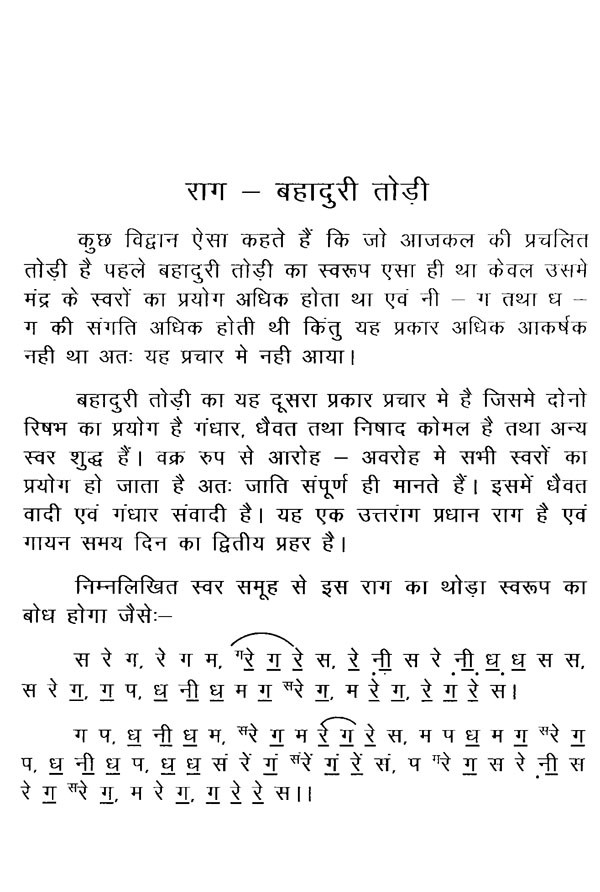 राग – बहादुरी तोड़ी
कुछ विद्वान ऐसा कहते हैं कि जो आजकल की प्रचलित
तोड़ी है पहले बहादुरी तोड़ी का स्वरूप एसा ही था केवल उसमे
मंद्र के स्वरों का प्रयोग अधिक होता था एवं नी – ग तथा ध –
ग की संगति अधिक होती थी किंतु यह प्रकार अधिक आकर्षक
नही था अतः यह प्रचार मे नही आया।
बहादुरी तोड़ी का यह दूसरा प्रकार प्रचार मे है जिसमे दोनो
रिषभ का प्रयोग है गंधार, धैवत तथा निषाद कोमल है तथा अन्य
स्वर शुद्ध हैं। वक्र रुप से आरोह – अवरोह मे सभी स्वरों का
प्रयोग हो जाता है अतः जाति संपूर्ण ही मानते हैं। इसमें धैवत
वादी एवं गंधार संवादी है। यह एक उत्तरांग प्रधान राग है एवं
गायन समय दिन का द्वितीय प्रहर है।
निम्नलिखित स्वर समूह से इस राग का थोड़ा स्वरूप का
बोध होगा जैसेः–
स रे ग, रे ग म, ᵍरे ग रे स, रे नी स रे नी ध ध स स,
स रे ग, ग प, ध नी ध म ग सरे ग, म रे ग, रे ग रे स।
ग प, ध नी ध म, सरे ग म रे ग रे स, म प ध म ग सरे ग
प, ध नी ध प, ध ध सं रें गं संरें गं रें सं, प गरे ग स रे नी स
रे ग सरे ग, म रे ग, ग रे रे स।।